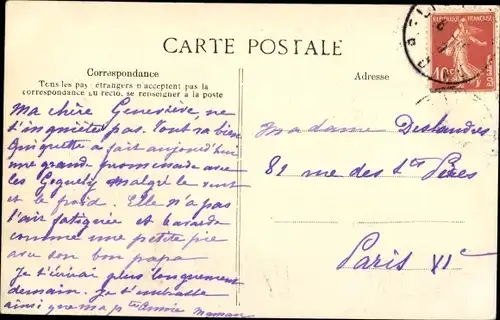 CARTE POSTALE
REPUBLIQUE FRANÇAISE
10c
POSTES
Correspondance
Tous les pays étrangers n'acceptent pas la
correspondance au recto, se renseigner à la poste
Adresse
Ma chère Geneviève, ne
t'inquiète pas. Tout va bien
Quiquette a fait aujourd'hui
une grande promenade avec
les Goguely malgré le vent
et le froid. Elle n'a pas
l'air fatiguée et bavarde
comme une petite pie
avec son bon papa
Je t'écrirai plus longuement
demain. Je t'embrasse
ainsi que ma pte Annie Maman
Madame Deslandres
81 rue des Sts Pères
Paris VIe